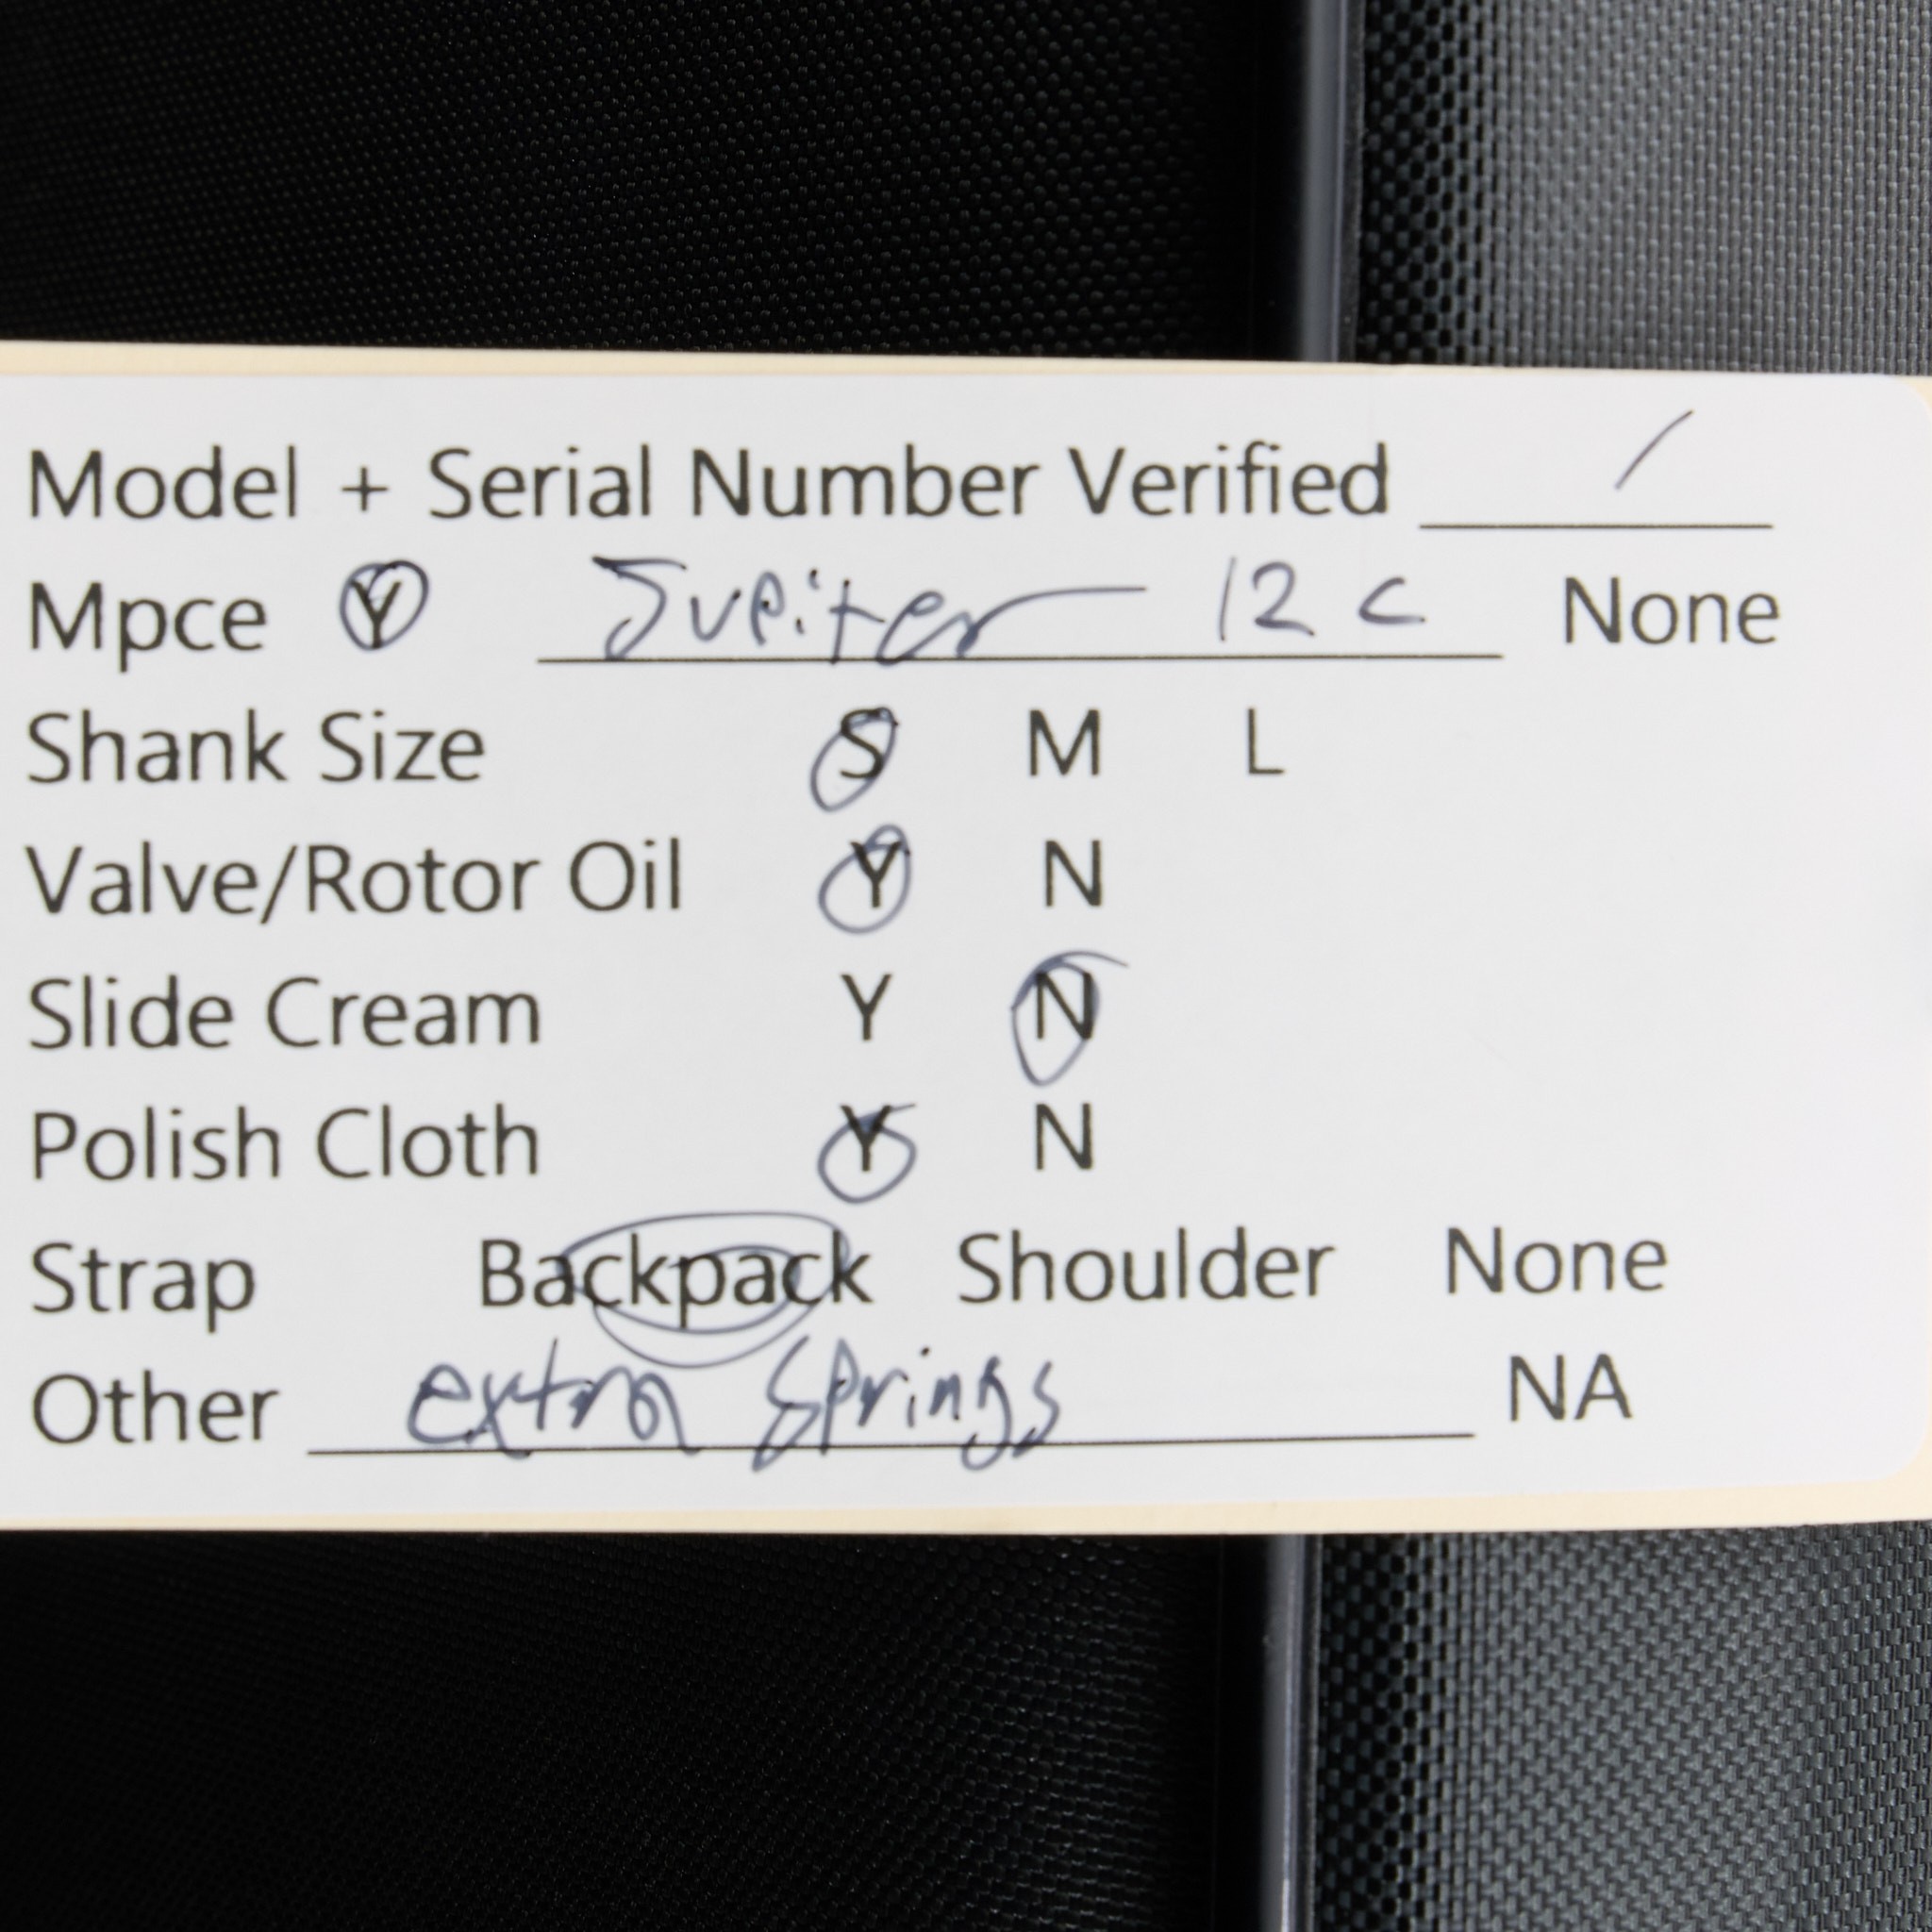 Model + Serial Number Verified /
Mpce Y Jupiter 12 C None
Shank Size S M L
Valve/Rotor Oil Y N
Slide Cream Y N
Polish Cloth Y N
Strap Backpack Shoulder None
Other extra Springs NA